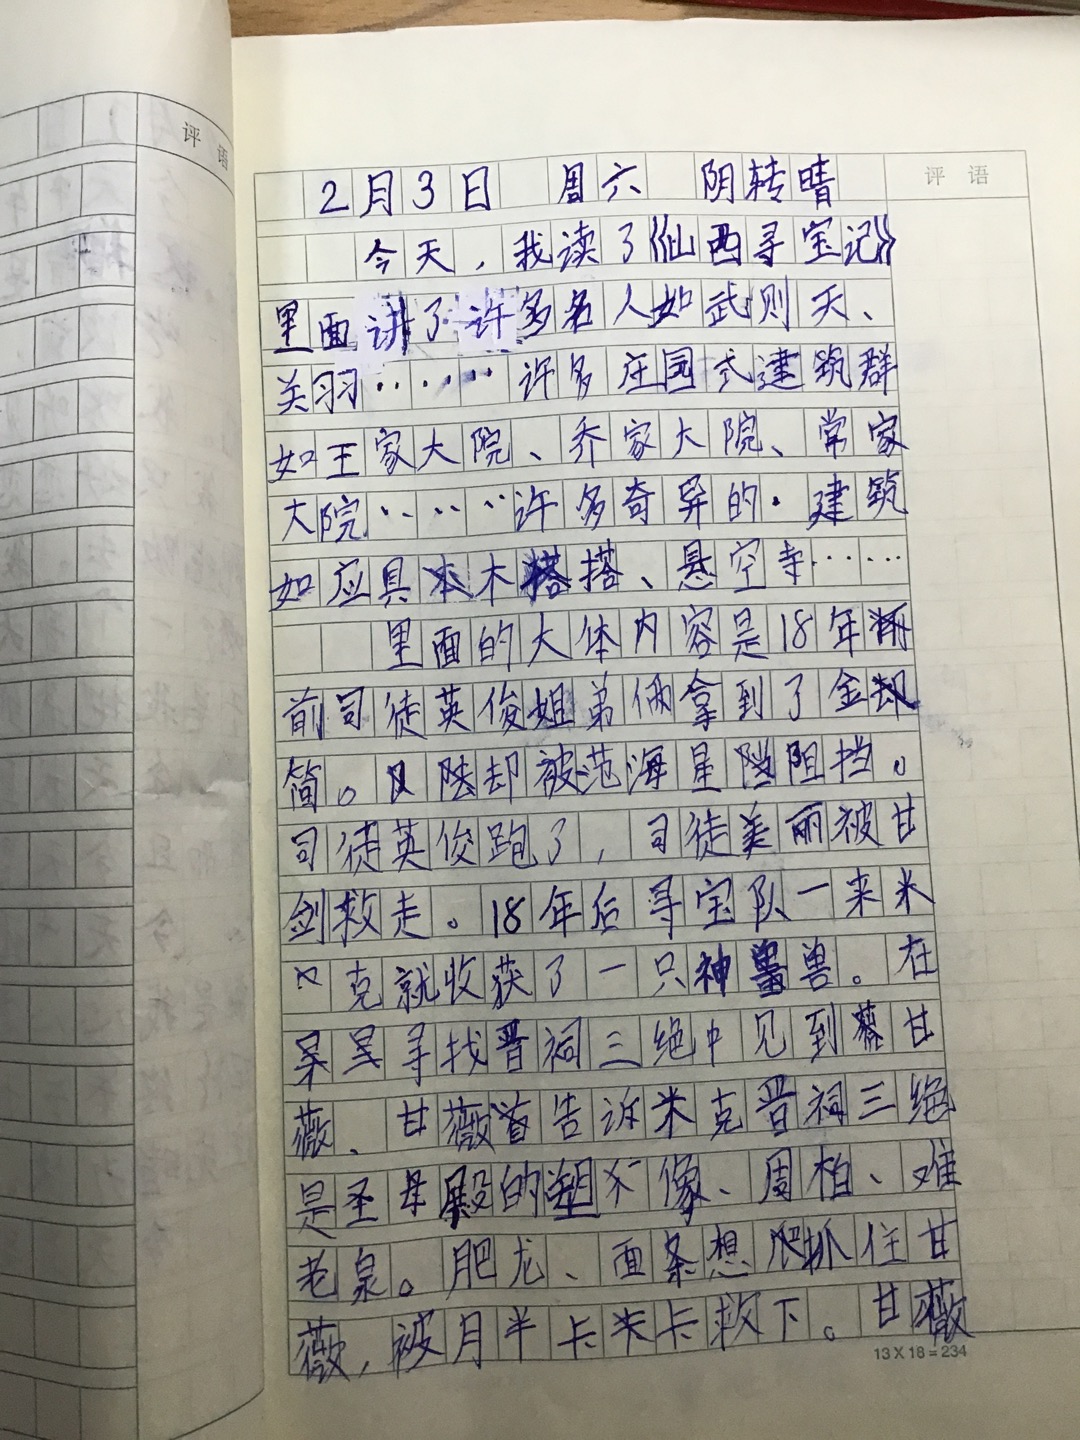 评语
评语
2月3日 周六 阴转晴
今天，我读了《山西寻宝记》
里面讲了许多名人如武则天、
关羽……许多庄园式建筑群
如王家大院、乔家大院、常家
大院……许多奇异的·建筑
如应具木搭、悬空寺……
里面的大体内容是18年
前司徒英俊姐弟俩拿到了金
简。却被范海星阻挡。
司徒英俊跑了，司徒美丽被甘
剑救走。18年后寻宝队一来米
克就收获了一只神兽。在
呆呆寻找晋祠三绝中见到甘
薇、甘薇告诉米克晋祠三绝
是圣母殿的塑像、周柏、难
老泉。肥龙、面条想抓住甘
薇，被月半卡米卡救下。甘薇
13X18=234